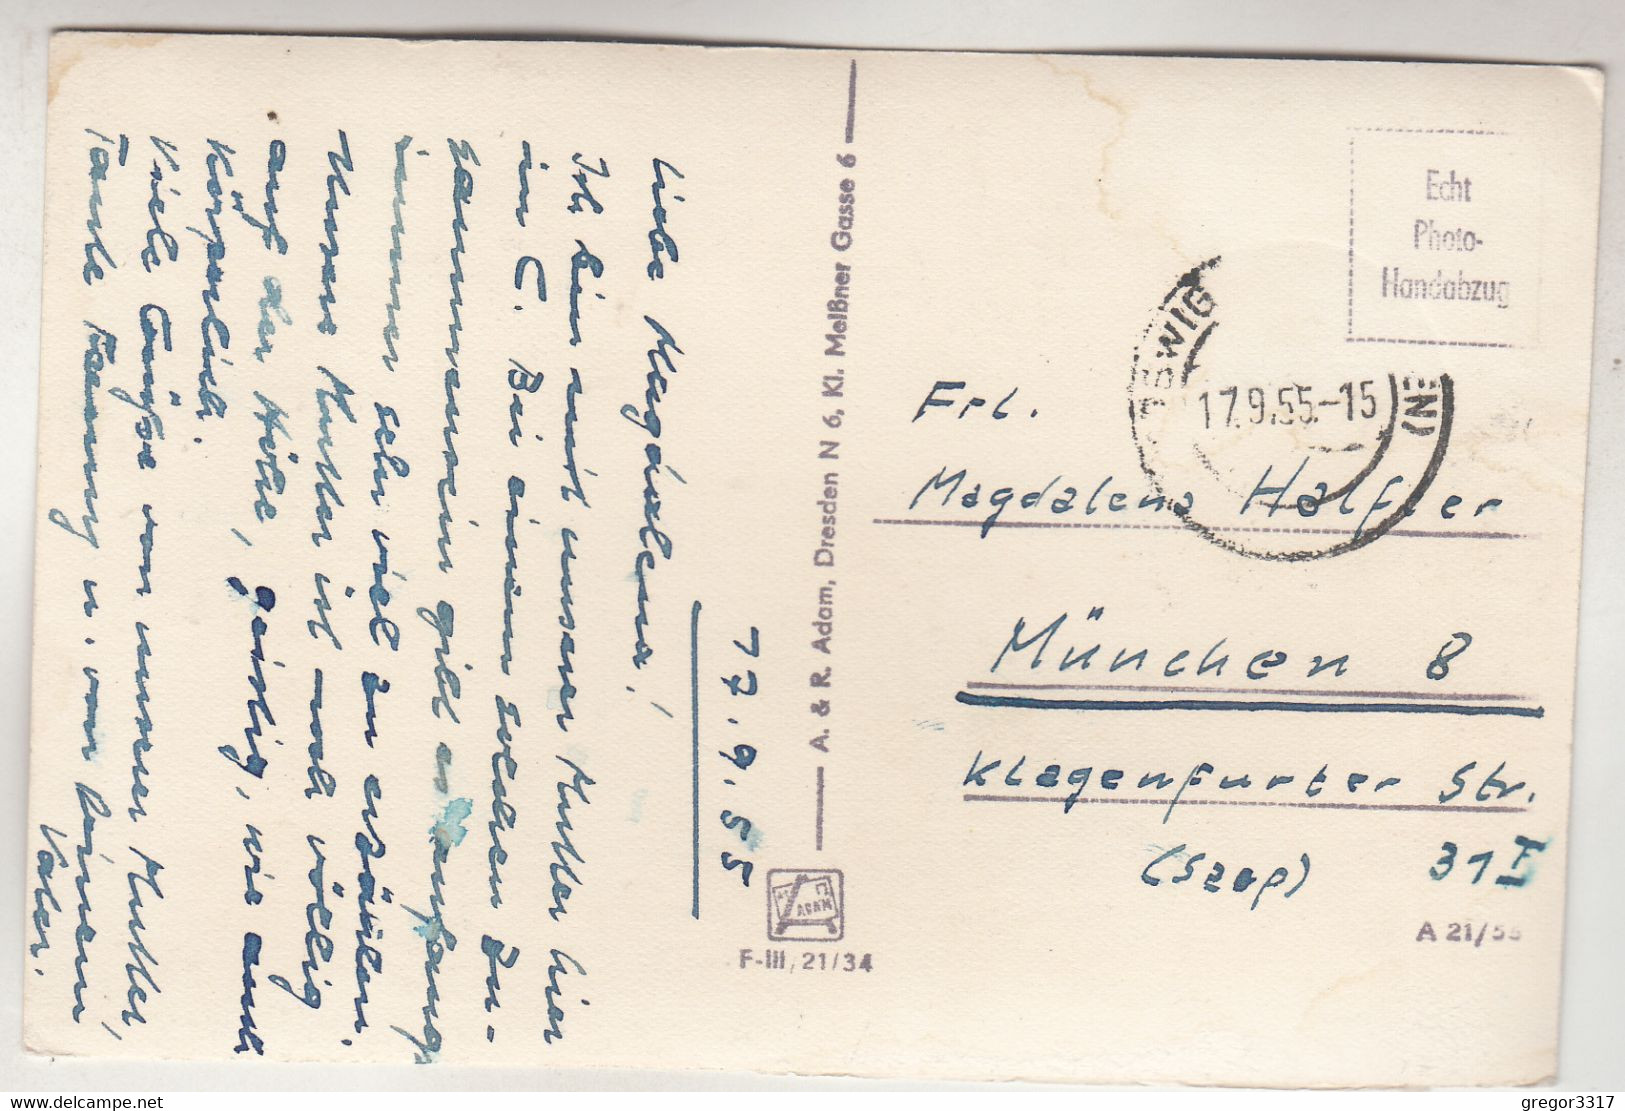 17.9.55
Liebe Magdalena!
Ich bin mit unserer Mutter hier
in C. Bei einem solchen Zu-
sammensein gibt es anfangs
immer sehr viel zu erzählen.
Unsere Mutter ist noch völlig
auf der Höhe, geistig, wie auch
körperlich.
Viele Grüße von unserer Mutter,
Tante Fanny u. von Deinem
Vater.
A. & R. Adam, Dresden N 6, Kl. Meißner Gasse 6
ADAM
F-III, 21/34
Echt
Photo-
Handabzug
SWIG
EN)
17.9.55.-15
Frl.
Magdalena Halfter
München 8
Klagenfurter Str.
(Szop) 31 I
A 21/55
gregor3317